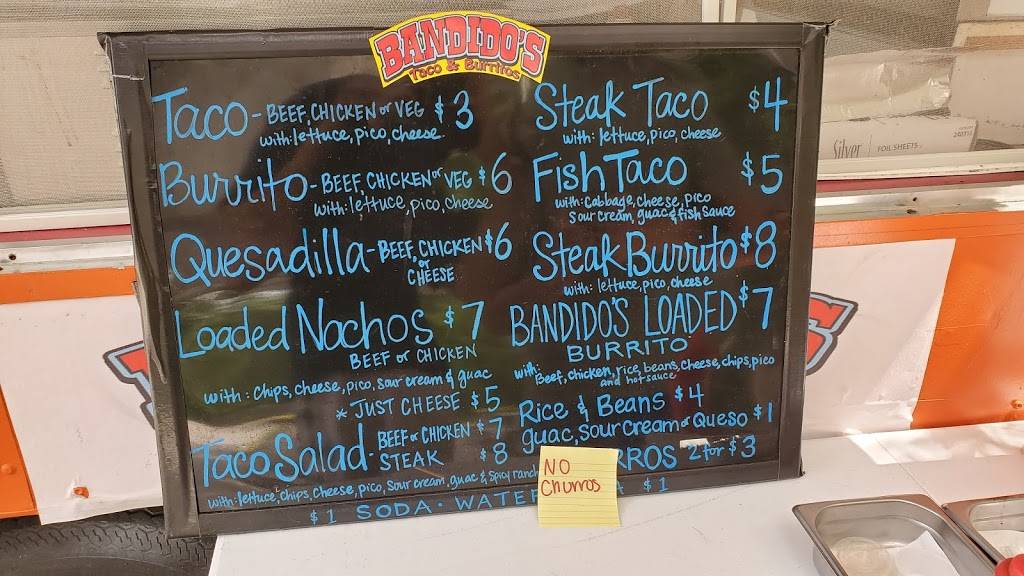 BANDIDO'S
Taco & Burritos
Taco - BEEF, CHICKEN or VEG $3
with: lettuce, pico, cheese
Burrito - BEEF, CHICKEN or VEG $6
with: lettuce, pico, cheese
Quesadilla - BEEF, CHICKEN $6
or
CHEESE
Loaded Nachos $7
BEEF or CHICKEN
with: chips, cheese, pico, sour cream & guac
* JUST CHEESE $5
Taco Salad - BEEF or CHICKEN $7
STEAK $8
with: lettuce, chips, cheese, pico, sour cream, guac & spicy ranch
Steak Taco $4
with: lettuce, pico, cheese
Fish Taco $5
with: cabbage, cheese, pico
sour cream, guac & fish sauce
Steak Burrito $8
with: lettuce, pico, cheese
BANDIDO'S LOADED $7
BURRITO
with: Beef, chicken, rice, beans, cheese, chips, pico
and hot sauce
Rice & Beans $4
guac, sour cream or Queso $1
RROS 2 for $3
$1 SODA · WATER $1
NO
Churros
Silver FOIL SHEETS